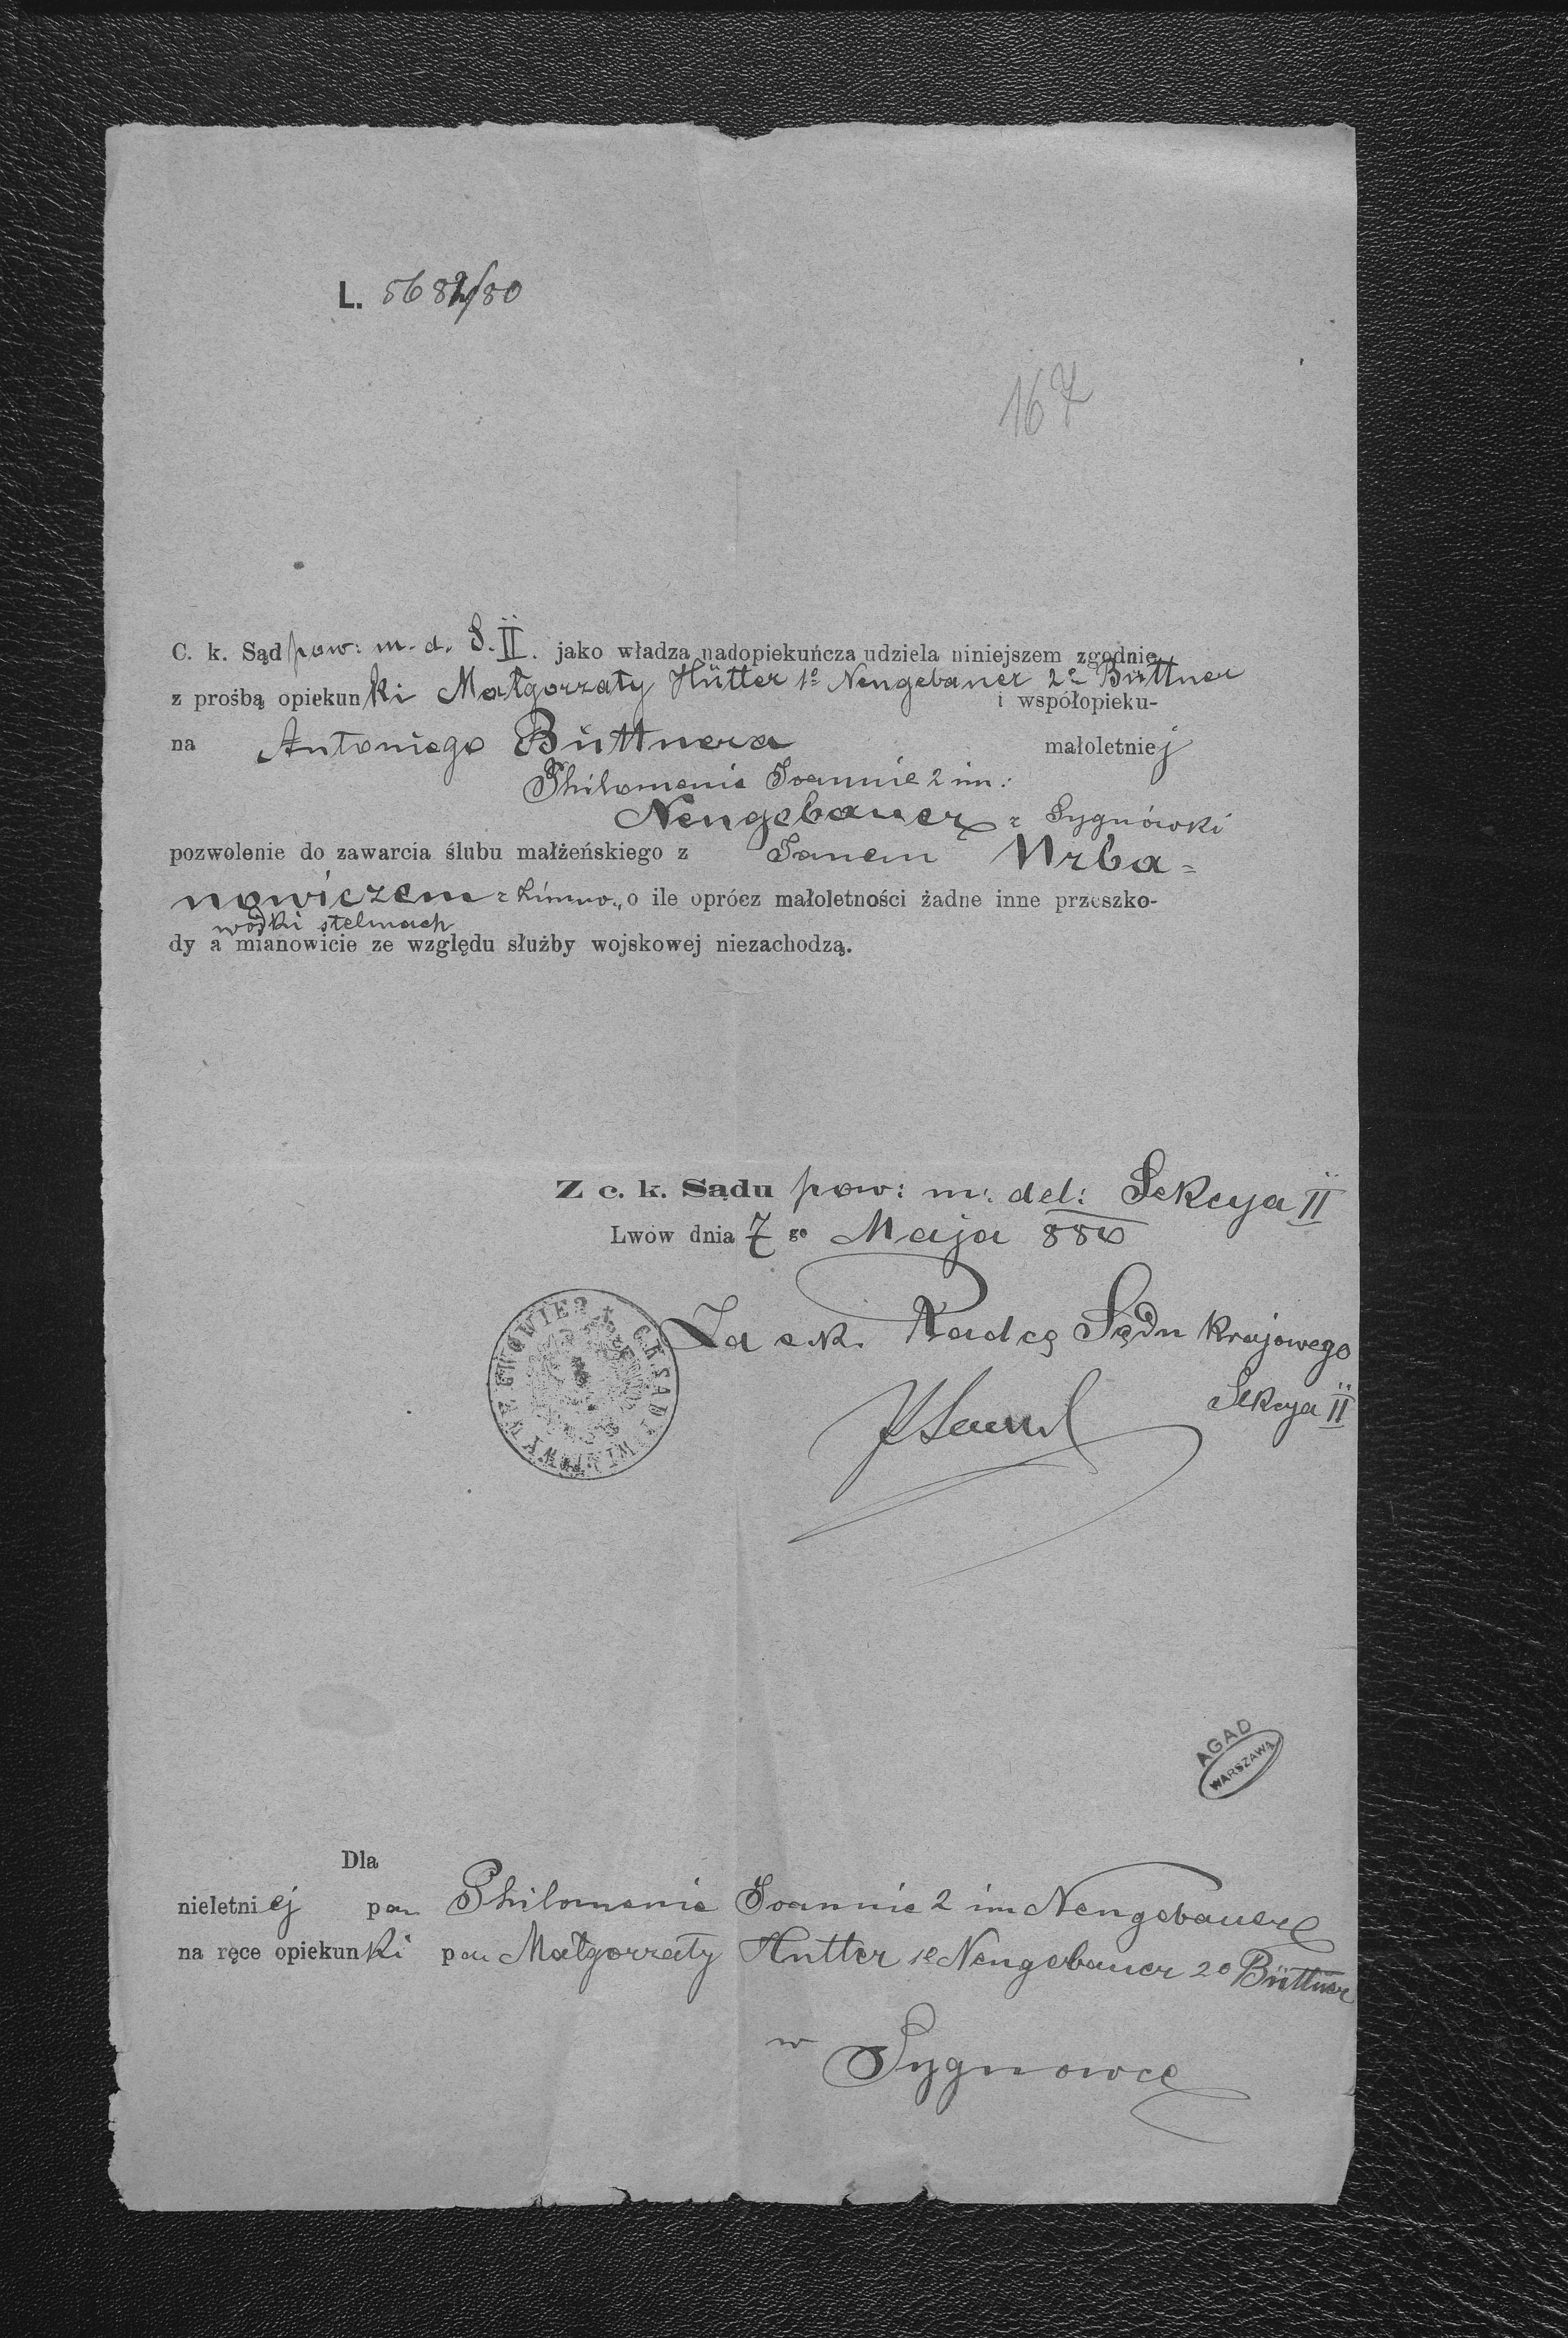 L. 5682/80
167
C. k. Sąd pow: m. d. S. II. jako władza nadopiekuńcza udziela niniejszem zgodnie
z prośbą opiekunki Małgorzaty Hütter 1º Neugebauer 2º Büttner i współopieku-
na Antoniego Büttnera małoletniej
Philomenie Joannie 2 im:
Neugebauer z Sygnówki
pozwolenie do zawarcia ślubu małżeńskiego z Janem Urba=
nowiczem z Zimno„ o ile oprócz małoletności żadne inne przeszko-
wódki stelmach
dy a mianowicie ze względu służby wojskowej niezachodzą.
Z c. k. Sądu pow: m: del: Sekcya II
Lwów dnia 7 go Maja 880
Za c.k. Radcę Sądu Krajowego
Sekcya II
C.K. SĄD POWIATOWY WE LWOWIE
AGAD
WARSZAWA
Dla
nieletniej pan Philomenie Joannie 2 im Neugebauer
na ręce opiekunki pan Małgorzaty Hutter 1º Neugebauer 2º Büttner
w Sygnowce